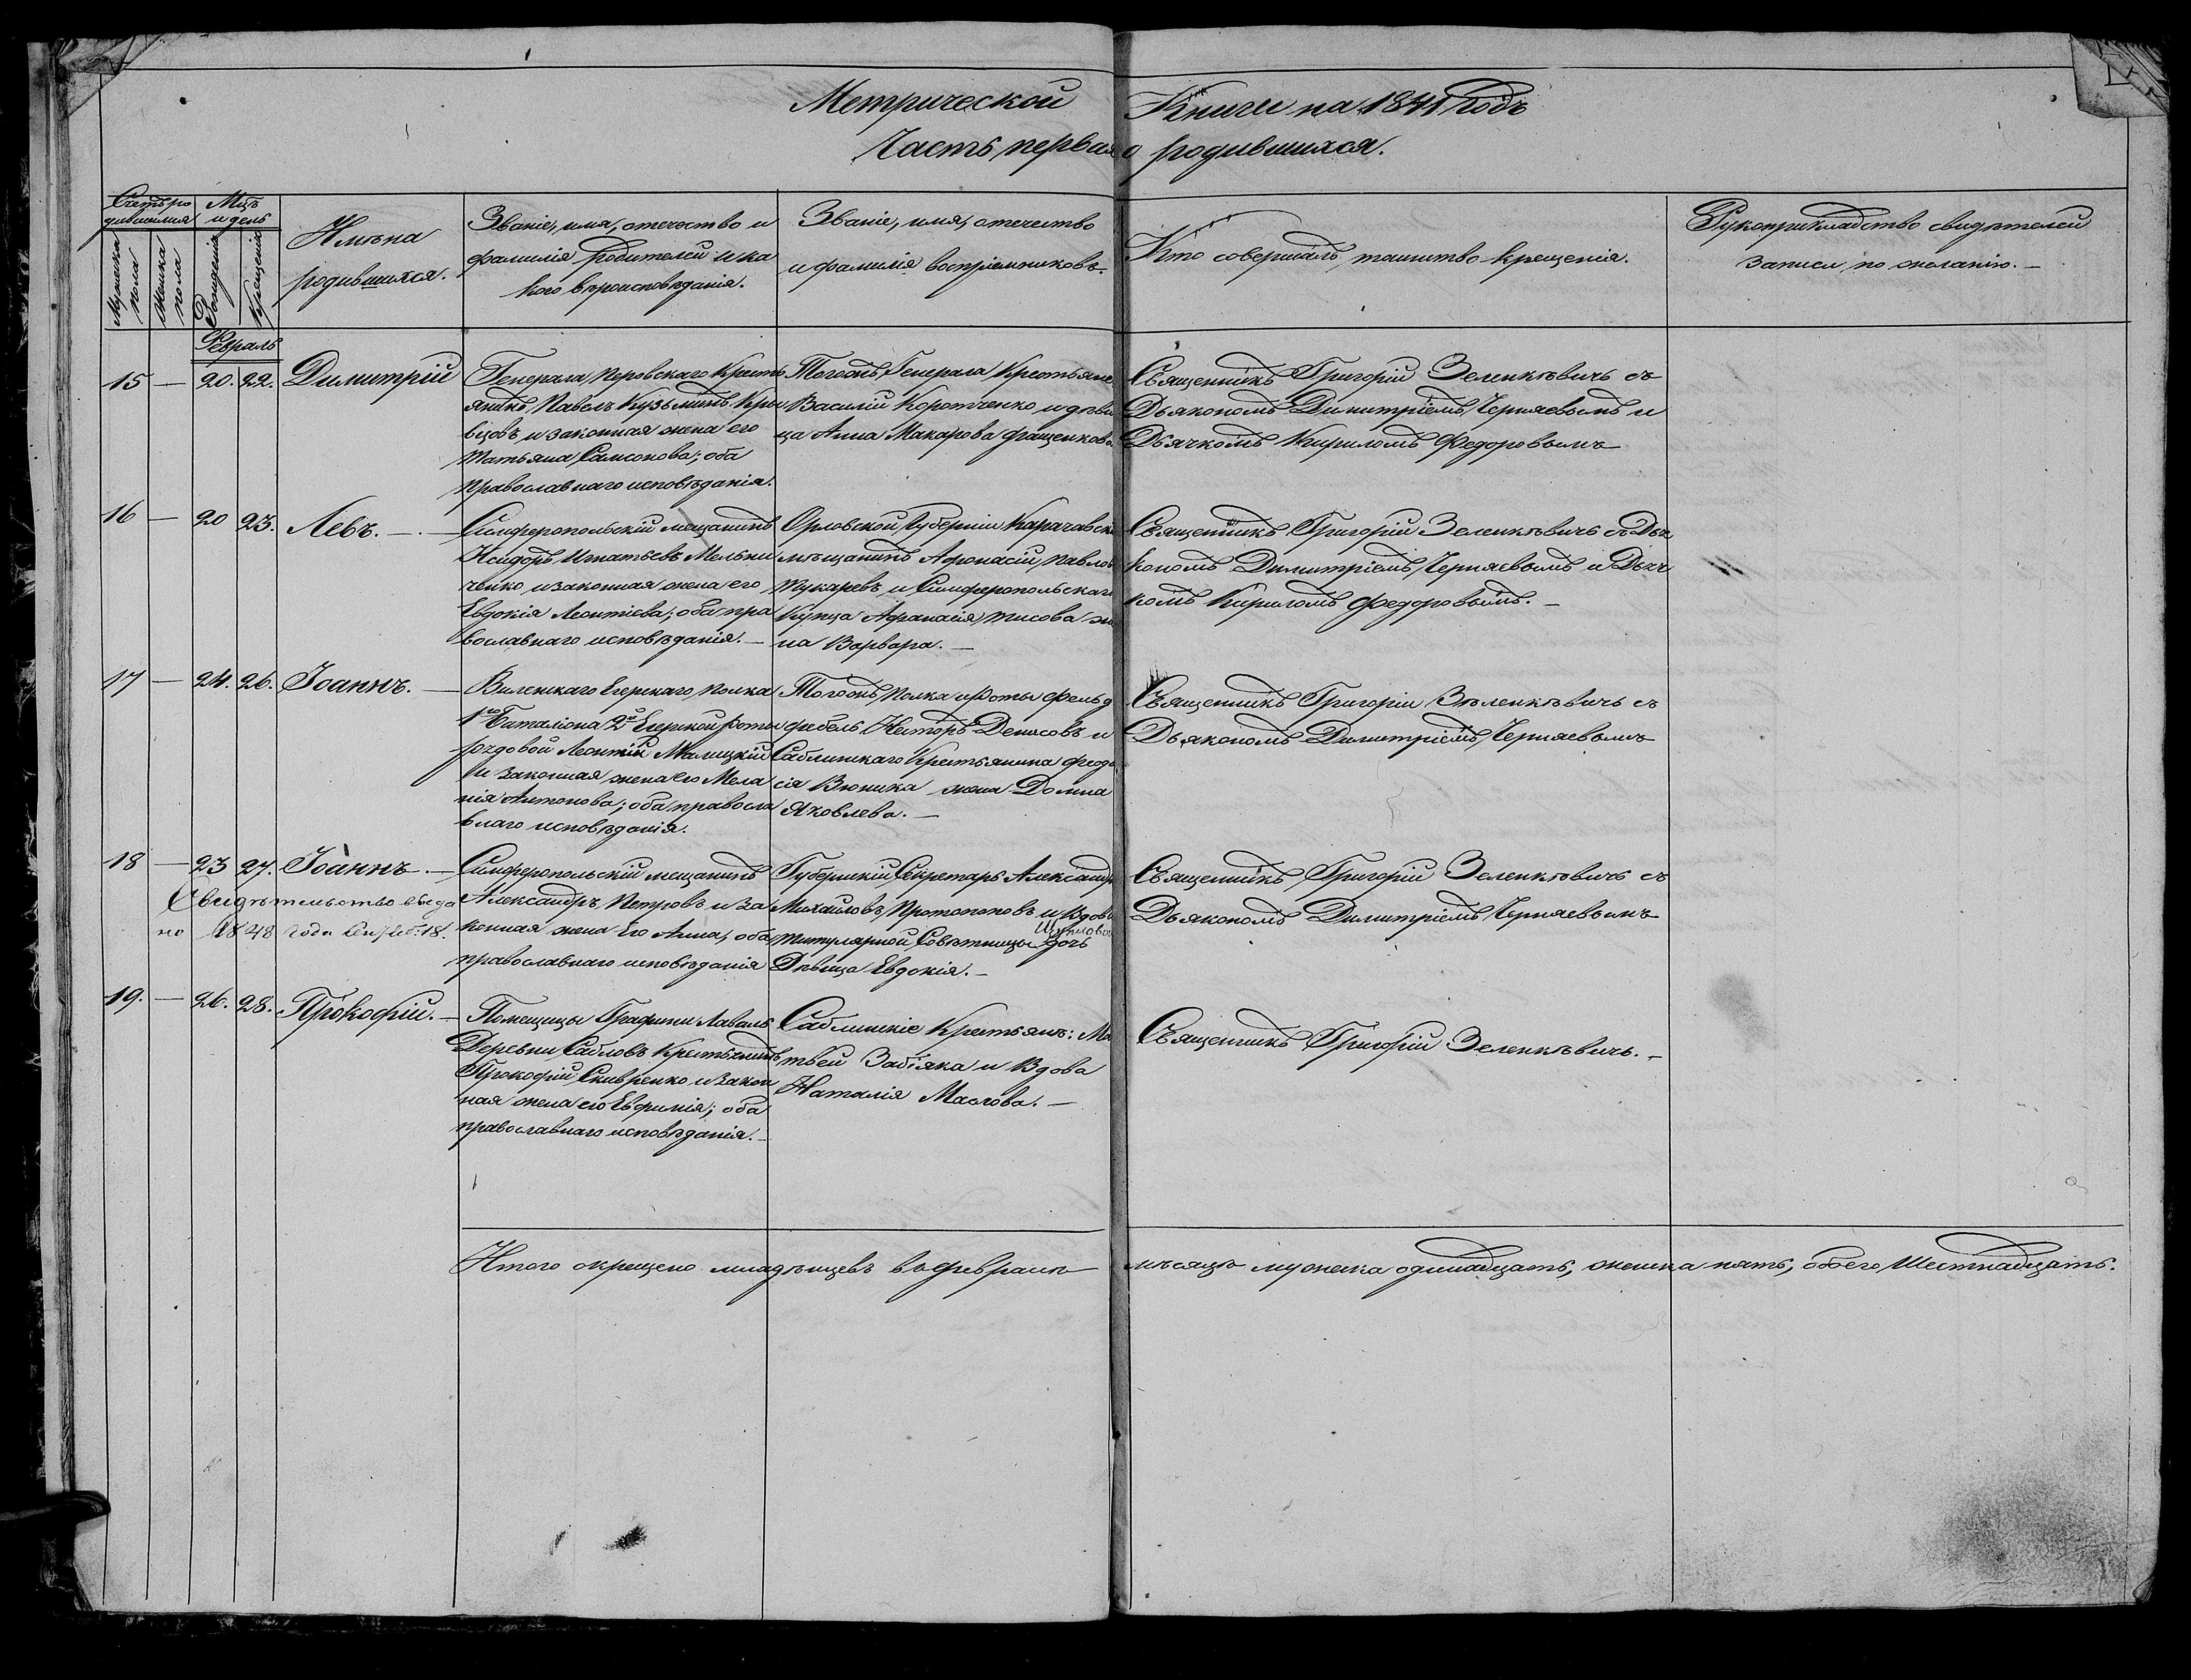 Метрической Книги на 1841 Годъ
Часть первая о родившихся.
Счетъ ро
дившихся
Мцъ
и день
Мужеска
пола
Женска
пола
Рожденія
Крещенія
Имѣна
родившихся.
Званіе, имя, отечество и
фамилія родителей и ка
кого вѣроисповѣданія.
Званіе, имя, отечество
и фамилія воспріемниковъ.
Кто совершалъ таинство крещенія.
Рукоприкладство свидѣтелей
записи по желанію.
Февраль
15 — 20. 22. Димитрій
Генерала Перовскаго Кресть
янинъ Павелъ Кузьминъ Кри
вцовъ и законная жена его
Татьяна Самсонова; оба
православнаго исповѣданія.
Тогожъ Генерала Крестьяне
Василій Коротченко и дѣви
ца Анна Макарова Фащенкова
Священникъ Григорій Зеленкѣвичь съ
Дьякономъ Димитріемъ Черняевымъ и
Дьячкомъ Кириломъ Федоровымъ
16 — 20 23. Левъ. —
Симферопольскій мещанинъ
Исидоръ Игнатьевъ Мельни
ченко и законная жена его
Евдокія Леонтіева; оба пра
вославнаго исповѣданія. —
Орловской Губерніи Карачавск
мѣщанинъ Афонасій Павлов
Тукаревъ и Симферопольскаго
Купца Афанасія Тисова же
на Варвара. —
Священникъ Григорій Зеленкѣвичь съ Дья
кономъ Димитріемъ Черняевымъ и Дьяч
комъ Кириломъ Федоровымъ. —
17 — 24. 26. Іоаннъ. —
Виленскаго Егерскаго Полка
1го Баталіона 2й Егерской роты
рядовой Леонтій Малицкій
и законная жена его Мела
нія Антонова; оба правосла
внаго исповѣданія.
Тогожъ Полка и роты Фельд
фебель Несторъ Денисовъ и
Саблинскаго Крестьянина Феодо
сія Вюника жена Домна
Яковлева. —
Священникъ Григорій Зеленкѣвичь съ
Дьякономъ Димитріемъ Черняевымъ
18 — 23 27. Іоаннъ. —
Свидѣтельство выда
но 1848 года Сентяб. 18.
Симферопольскій мещанинъ
Александръ Петровъ и за
конная жена Его Анна, оба
православнаго исповѣданія
Губернскій Секретарь Александръ
Михайловъ Протопоповъ и Вдовы
Титулярной Совѣтницы Шуиловой дочь
Дѣвица Евдокія. —
Священникъ Григорій Зеленкѣвичь съ
Дьякономъ Димитріемъ Черняевымъ
19. — 26. 28. Прокофій. —
Помещицы Графини Лаваль
Деревни Сабловъ Крестьянинъ
Прокофій Сквиренко и закон
ная жена его Евфимія; оба
православнаго исповѣданія. —
Саблинскіе Крестьянъ: Ма
твей Забіяка и Вдова
Наталія Маслова. —
Священникъ Григорій Зеленкѣвичь. —
Итого окрещено младѣнцевъ въ февралѣ мѣсяцѣ мужеска одинадцать, женска пять, обоего Шестнадцать.